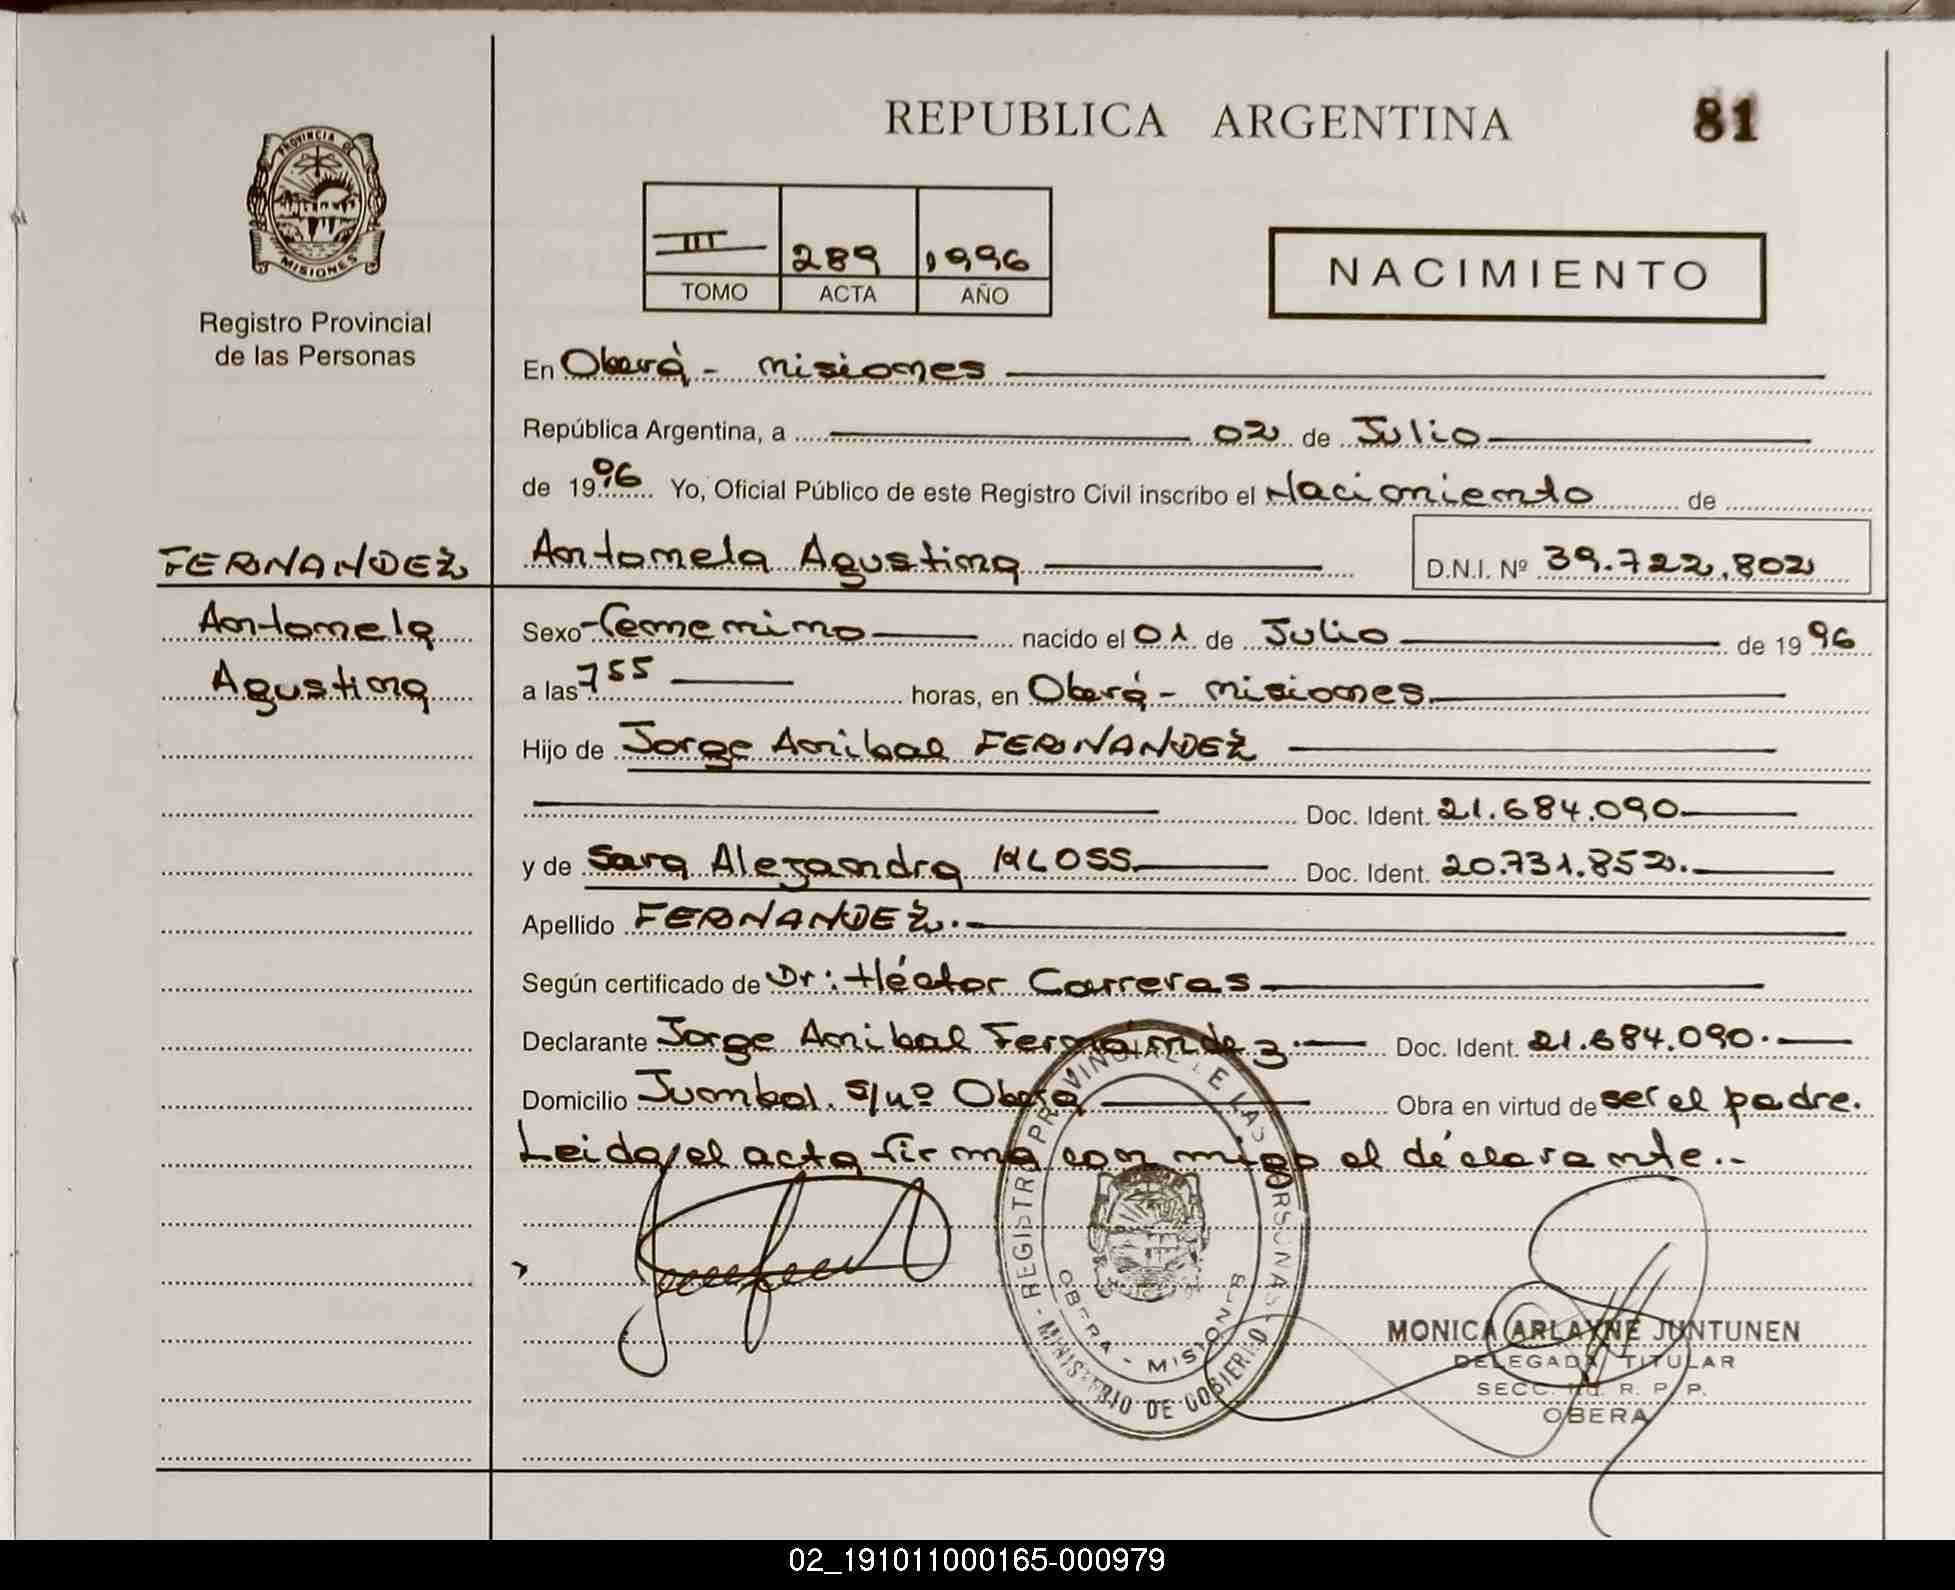 REPUBLICA ARGENTINA
81
PROVINCIA DE
MISIONES
Registro Provincial
de las Personas
III 289 1996
TOMO ACTA AÑO
NACIMIENTO
En Oberá - Misiones
República Argentina, a 02 de Julio
de 1996 Yo, Oficial Público de este Registro Civil inscribo el Nacimiento de
FERNANDEZ
Antonela Agustina D.N.I. Nº 39.722.802
Antonela
Agustina
Sexo Femenino nacido el 01 de Julio de 1996
a las 755 horas, en Oberá - Misiones
Hijo de Jorge Anibal FERNANDEZ
Doc. Ident. 21.684.090
y de Sara Alejandra KLOSS Doc. Ident. 20.731.852.
Apellido FERNANDEZ.
Según certificado de Dr: Héctor Carreras
Declarante Jorge Anibal Fernandez. Doc. Ident. 21.684.090.
Domicilio s/nº Oberá Obra en virtud de ser el padre.
Leida el acta firma con migo el déclarante.-
REGISTRO PROVINCIAL DE LAS PERSONAS - MINISTERIO DE GOBIERNO -
OBERA - MISIONES
MONICA ARLAYNE JUNTUNEN
DELEGADA TITULAR
SECC. R. P. P.
OBERA
02_191011000165-000979